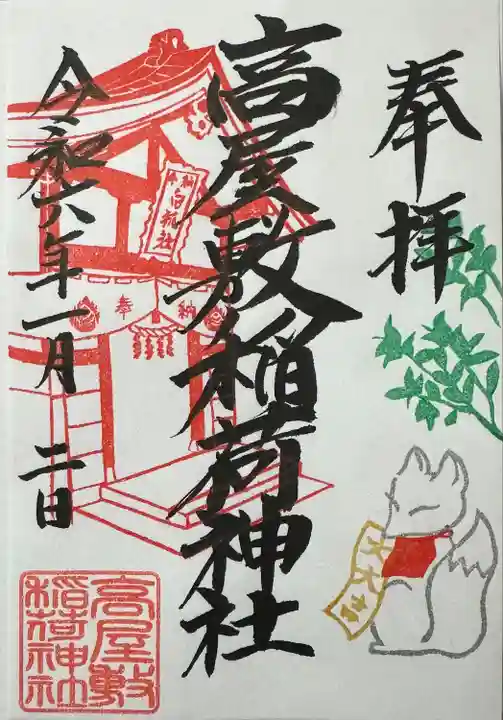 奉拝
高屋敷稲荷神社
令和六年一月二日
奉納
大大吉
高屋敷
稲荷神社